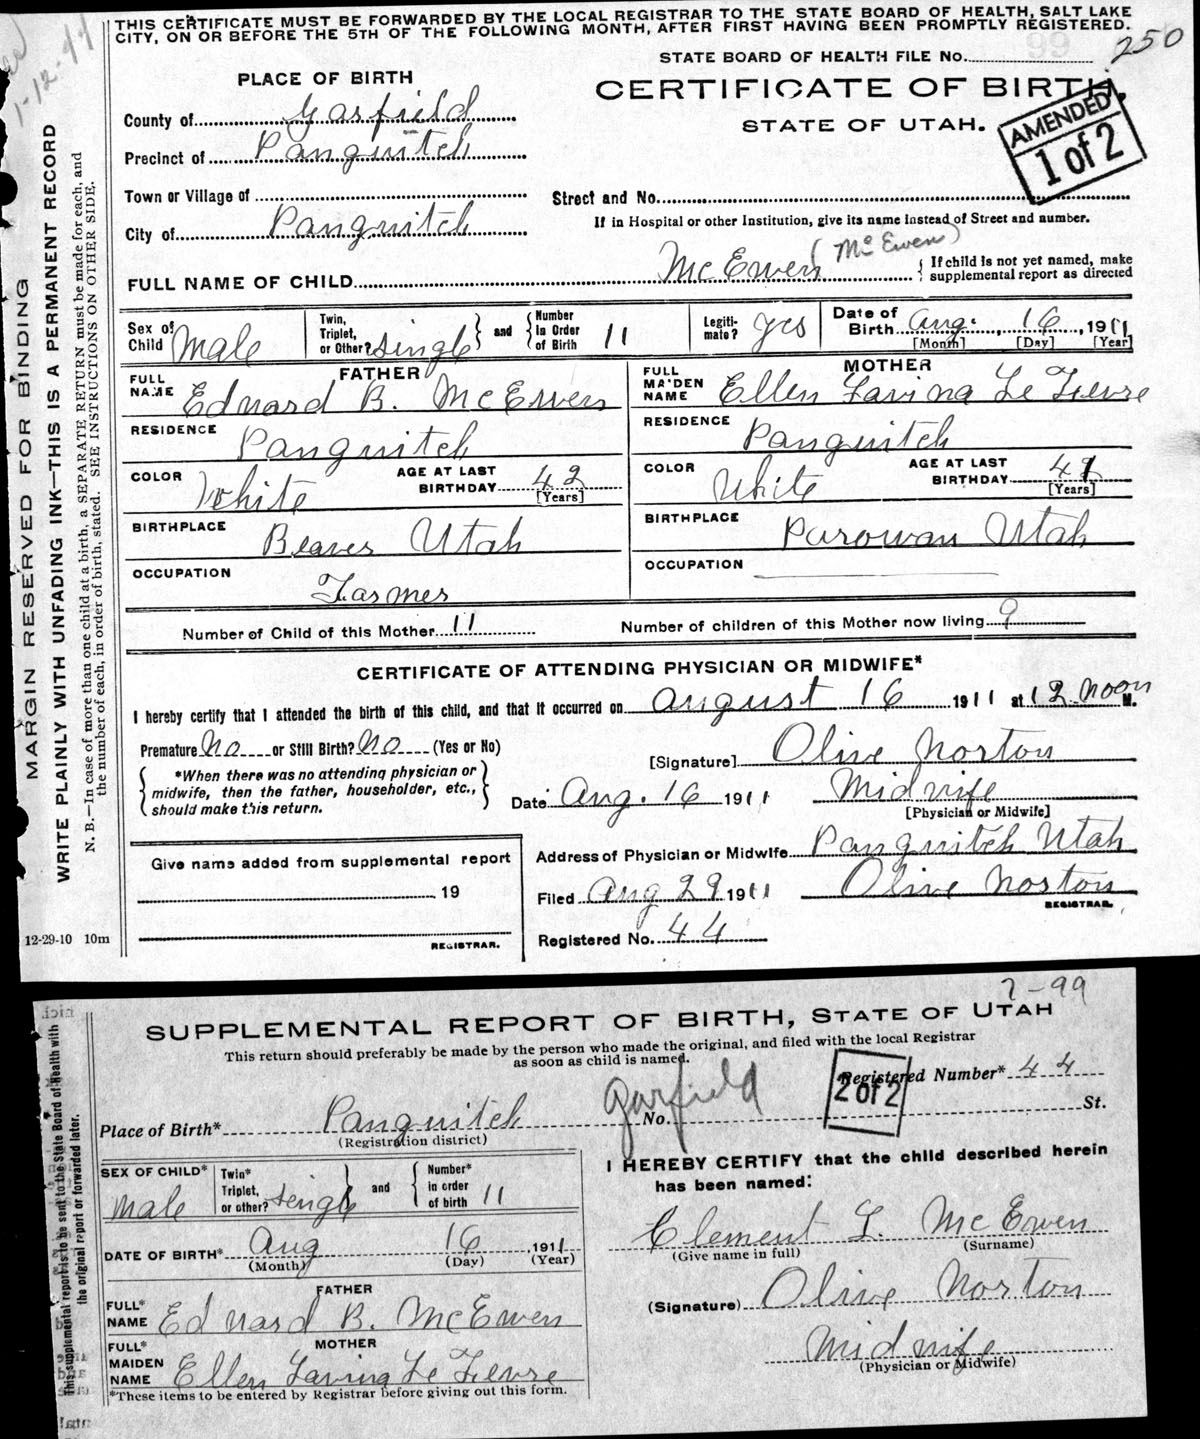 THIS CERTIFICATE MUST BE FORWARDED BY THE LOCAL REGISTRAR TO THE STATE BOARD OF HEALTH, SALT LAKE
CITY, ON OR BEFORE THE 5TH OF THE FOLLOWING MONTH, AFTER FIRST HAVING BEEN PROMPTLY REGISTERED.
1-12-44
250
STATE BOARD OF HEALTH FILE No.
PLACE OF BIRTH
CERTIFICATE OF BIRTH.
STATE OF UTAH.
AMENDED
1 of 2
County of Garfield
Precinct of Panguitch
Town or Village of
Street and No.
City of Panguitch
If in Hospital or other Institution, give its name instead of Street and number.
FULL NAME OF CHILD McEwen (McEwen)
If child is not yet named, make
supplemental report as directed
Sex of Child Male
Twin, Triplet, or Other? single
and
Number in Order of Birth 11
Legitimate? yes
Date of Birth Aug. 16, 1911
[Month] [Day] [Year]
FATHER
FULL NAME Edward B. McEwen
RESIDENCE Panguitch
COLOR White
AGE AT LAST BIRTHDAY 42
[Years]
BIRTHPLACE Beaver Utah
OCCUPATION Farmer
MOTHER
FULL MAIDEN NAME Ellen Lavina Le Fevre
RESIDENCE Panguitch
COLOR White
AGE AT LAST BIRTHDAY
[Years]
BIRTHPLACE Parowan Utah
OCCUPATION
Number of Child of this Mother 11
Number of children of this Mother now living 9
CERTIFICATE OF ATTENDING PHYSICIAN OR MIDWIFE*
I hereby certify that I attended the birth of this child, and that it occurred on August 16 1911 at 12 noon M.
Premature No or Still Birth? No (Yes or No)
*When there was no attending physician or
midwife, then the father, householder, etc.,
should make this return.
[Signature] Olive Norton
Date Aug. 16 1911
Midwife
[Physician or Midwife]
Give name added from supplemental report
19
REGISTRAR.
Address of Physician or Midwife Panguitch Utah
Filed Aug 29 1911 Olive Norton
REGISTRAR.
Registered No. 44
MARGIN RESERVED FOR BINDING
WRITE PLAINLY WITH UNFADING INK—THIS IS A PERMANENT RECORD
N. B.—In case of more than one child at a birth, a SEPARATE RETURN must be made for each, and
the number of each, in order of birth, stated. SEE INSTRUCTIONS ON OTHER SIDE.
12-29-10 10m
7-99
SUPPLEMENTAL REPORT OF BIRTH, STATE OF UTAH
This return should preferably be made by the person who made the original, and filed with the local Registrar
as soon as child is named.
Registered Number* 44
2 of 2
Garfield
Place of Birth* Panguitch No. St.
(Registration district)
SEX OF CHILD* Male
Twin* Triplet, or other? single
and
Number* in order of birth 11
DATE OF BIRTH* Aug 16, 1911
(Month) (Day) (Year)
FATHER
FULL* NAME Edward B. McEwen
MOTHER
FULL* MAIDEN NAME Ellen Lavina Le Fevre
*These items to be entered by Registrar before giving out this form.
I HEREBY CERTIFY that the child described herein
has been named:
Clement L. McEwen
(Give name in full) (Surname)
(Signature) Olive Norton
Midwife
(Physician or Midwife)
This supplemental report is to be sent to the State Board of Health with
the original report or forwarded later.